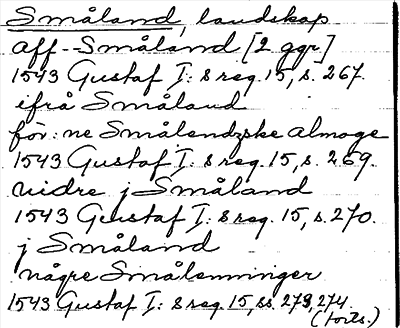 Småland, landskap
aff-Småland [2 ggr]
1543 Gustaf I:s reg. 15, s. 267.
ifrå Småland
för:ne Smålendzske almoge
1543 Gustaf I:s reg. 15, s. 269.
nidre j Småland
1543 Gustaf I:s reg. 15, s. 270.
j Småland
någre Smålenninger
1543 Gustaf I:s reg. 15, ss. 273, 274.
(forts.)